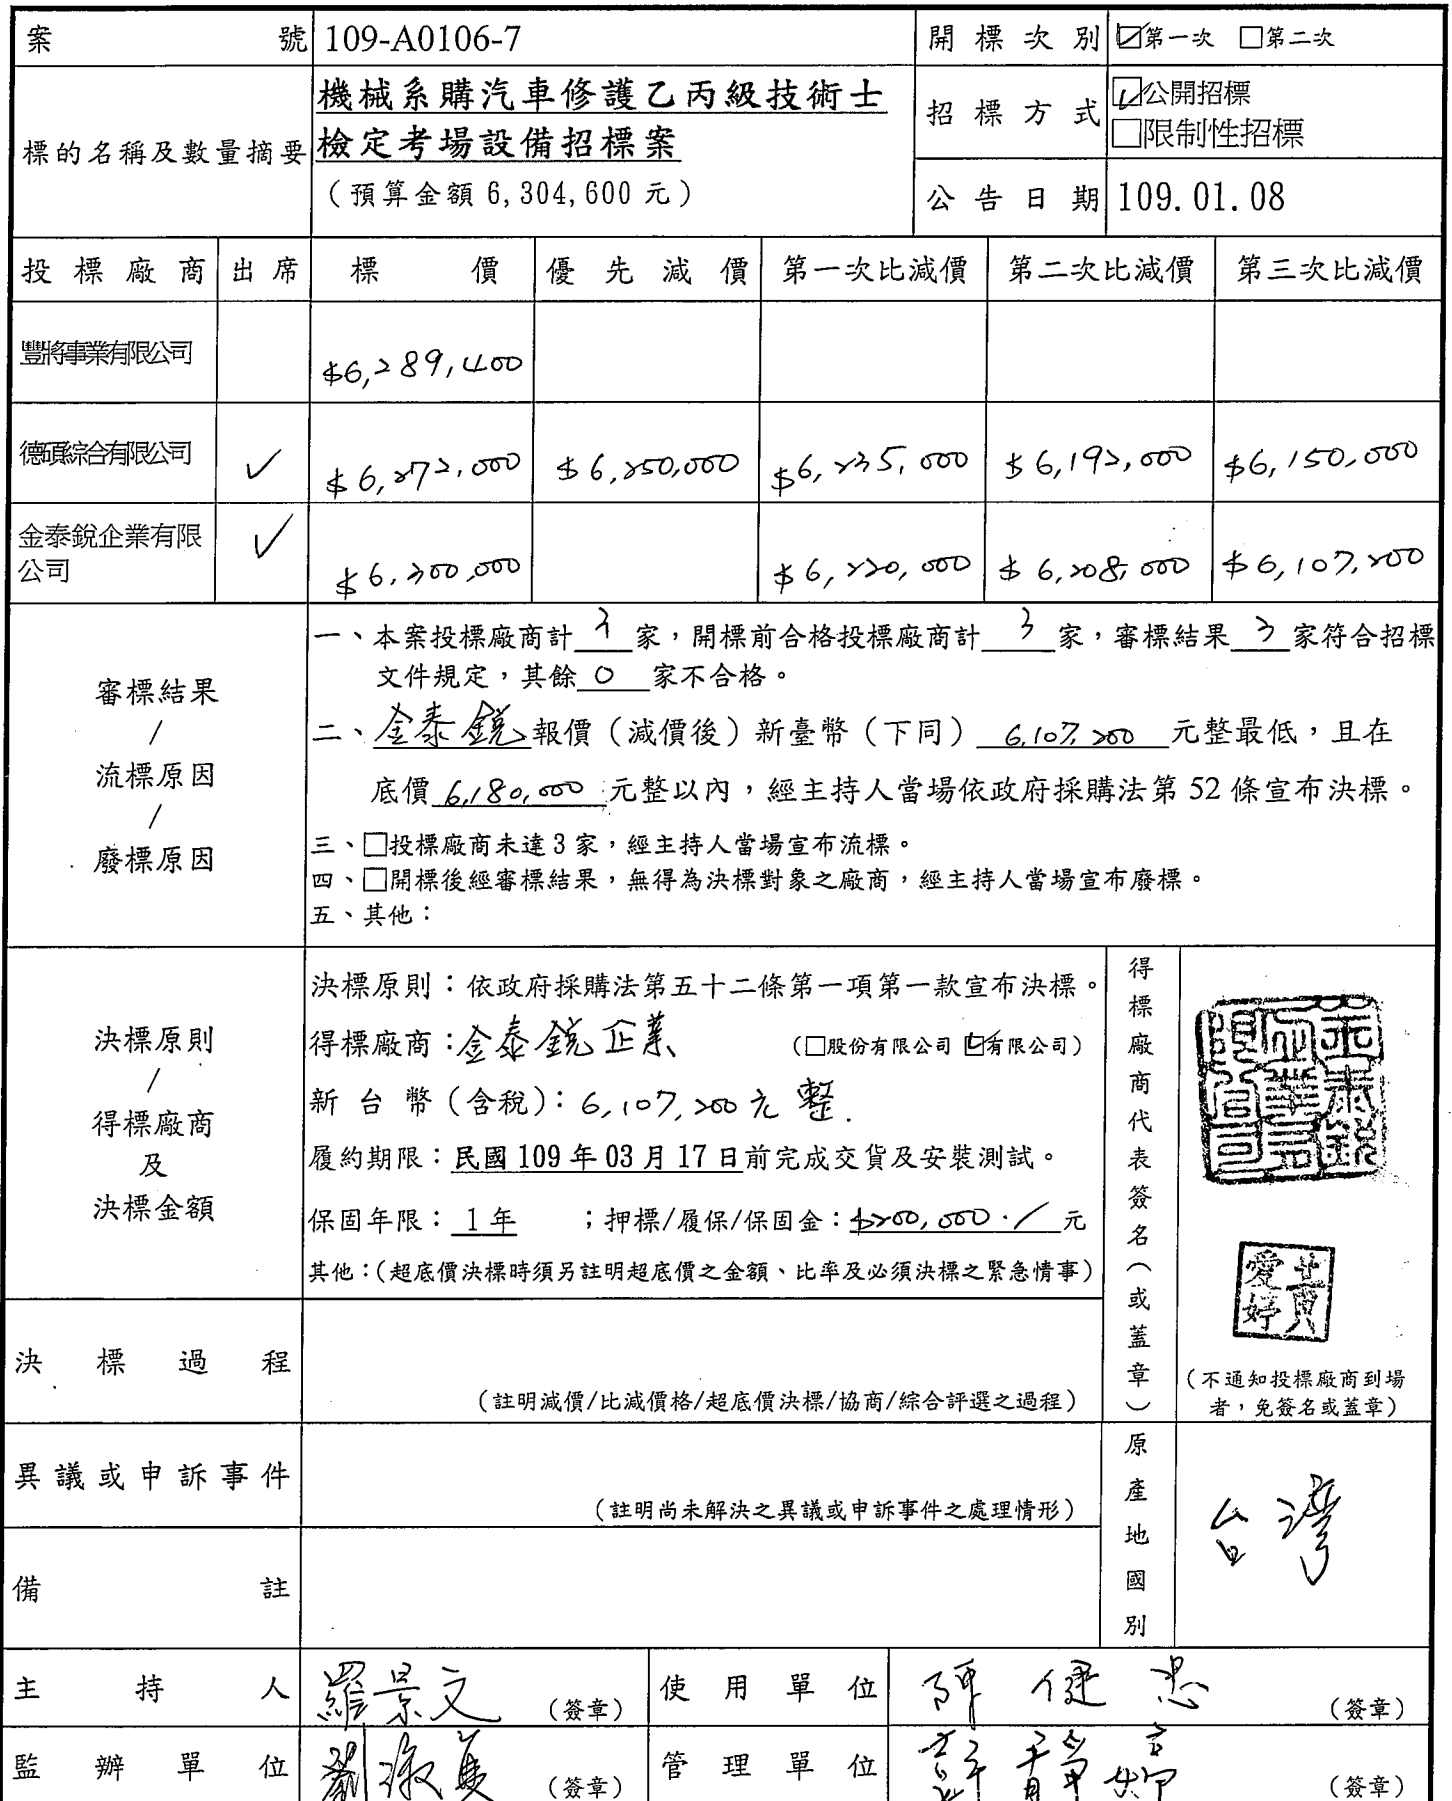 案號 109-A0106-7 開標次別 ☑第一次 □第二次
標的名稱及數量摘要 機械系購汽車修護乙丙級技術士
檢定考場設備招標案
（預算金額 6,304,600 元）
招標方式 ☑公開招標
□限制性招標
公告日期 109.01.08
投標廠商 出席 標價 優先減價 第一次比減價 第二次比減價 第三次比減價
豐將事業有限公司 $6,289,400
德碩綜合有限公司 ✓ $6,272,000 $6,250,000 $6,235,000 $6,192,000 $6,150,000
金泰銳企業有限
公司 ✓ $6,300,000 $6,220,000 $6,208,000 $6,107,200
審標結果
/
流標原因
/
廢標原因
一、本案投標廠商計 3 家，開標前合格投標廠商計 3 家，審標結果 3 家符合招標
文件規定，其餘 0 家不合格。
二、金泰銳報價（減價後）新臺幣（下同） 6,107,200 元整最低，且在
底價 6,180,000 元整以內，經主持人當場依政府採購法第 52 條宣布決標。
三、□投標廠商未達3家，經主持人當場宣布流標。
四、□開標後經審標結果，無得為決標對象之廠商，經主持人當場宣布廢標。
五、其他：
決標原則
/
得標廠商
及
決標金額
決標原則：依政府採購法第五十二條第一項第一款宣布決標。
得標廠商：金泰銳企業 （□股份有限公司 ☑有限公司）
新台幣(含稅)：6,107,200元整.
履約期限：民國 109 年 03 月 17 日前完成交貨及安裝測試。
保固年限： 1 年 ；押標/履保/保固金：$200,000./ 元
其他：（超底價決標時須另註明超底價之金額、比率及必須決標之緊急情事）
得標廠商代表簽名（或蓋章）
金泰銳企業有限公司
黃愛婷
（不通知投標廠商到場
者，免簽名或蓋章）
決標過程
（註明減價/比減價格/超底價決標/協商/綜合評選之過程）
異議或申訴事件
（註明尚未解決之異議或申訴事件之處理情形）
原產地國別 台灣
備註
主持人 羅景文 （簽章） 使用單位 陳健忠 （簽章）
監辦單位 （簽章） 管理單位 （簽章）